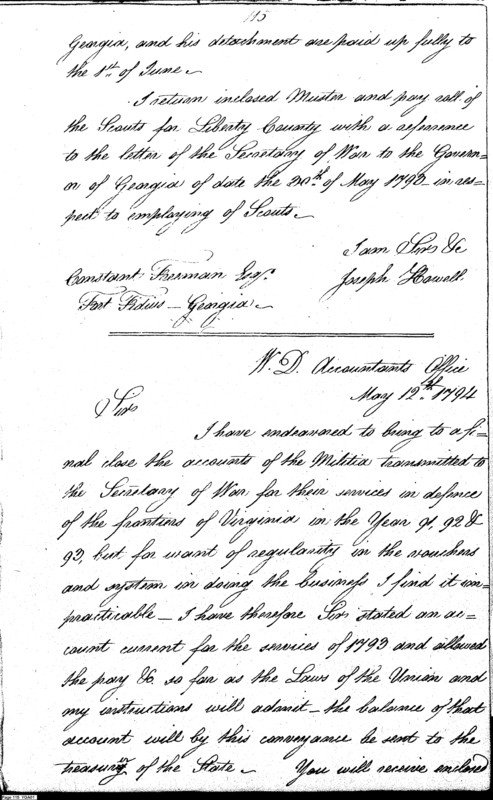 115
Georgia, and his detachment are paid up fully to
the 1st of June.
I return inclosed Muster and pay roll of
the Scouts for Liberty County with a reference
to the letter of the Secretary of War to the Govern=
or of Georgia of date the of May 1793 in res=
pect to employing of Scouts.
I am Sir &c
Constant Freeman Esqr.
Joseph Howell.
Fort Fidius – Georgia.
W. D. Accountants Office
May 12th 1794
Sir
I have endeavored to bring to a fi=
nal close the accounts of the Militia transmitted to
the Secretary of War for their services in defence
of the frontiers of Virginia in the Year 92 &
93, but for want of regularity in the vouchers
and system in doing the business I find it im=
practicable – I have therefore Sir stated an ac=
count current for the services of 1793 and allowed
the pay &c. so far as the Laws of the Union and
my instructions will admit – the balance of that
account will by this conveyance be sent to the
treasury of the State. You will receive enclosed